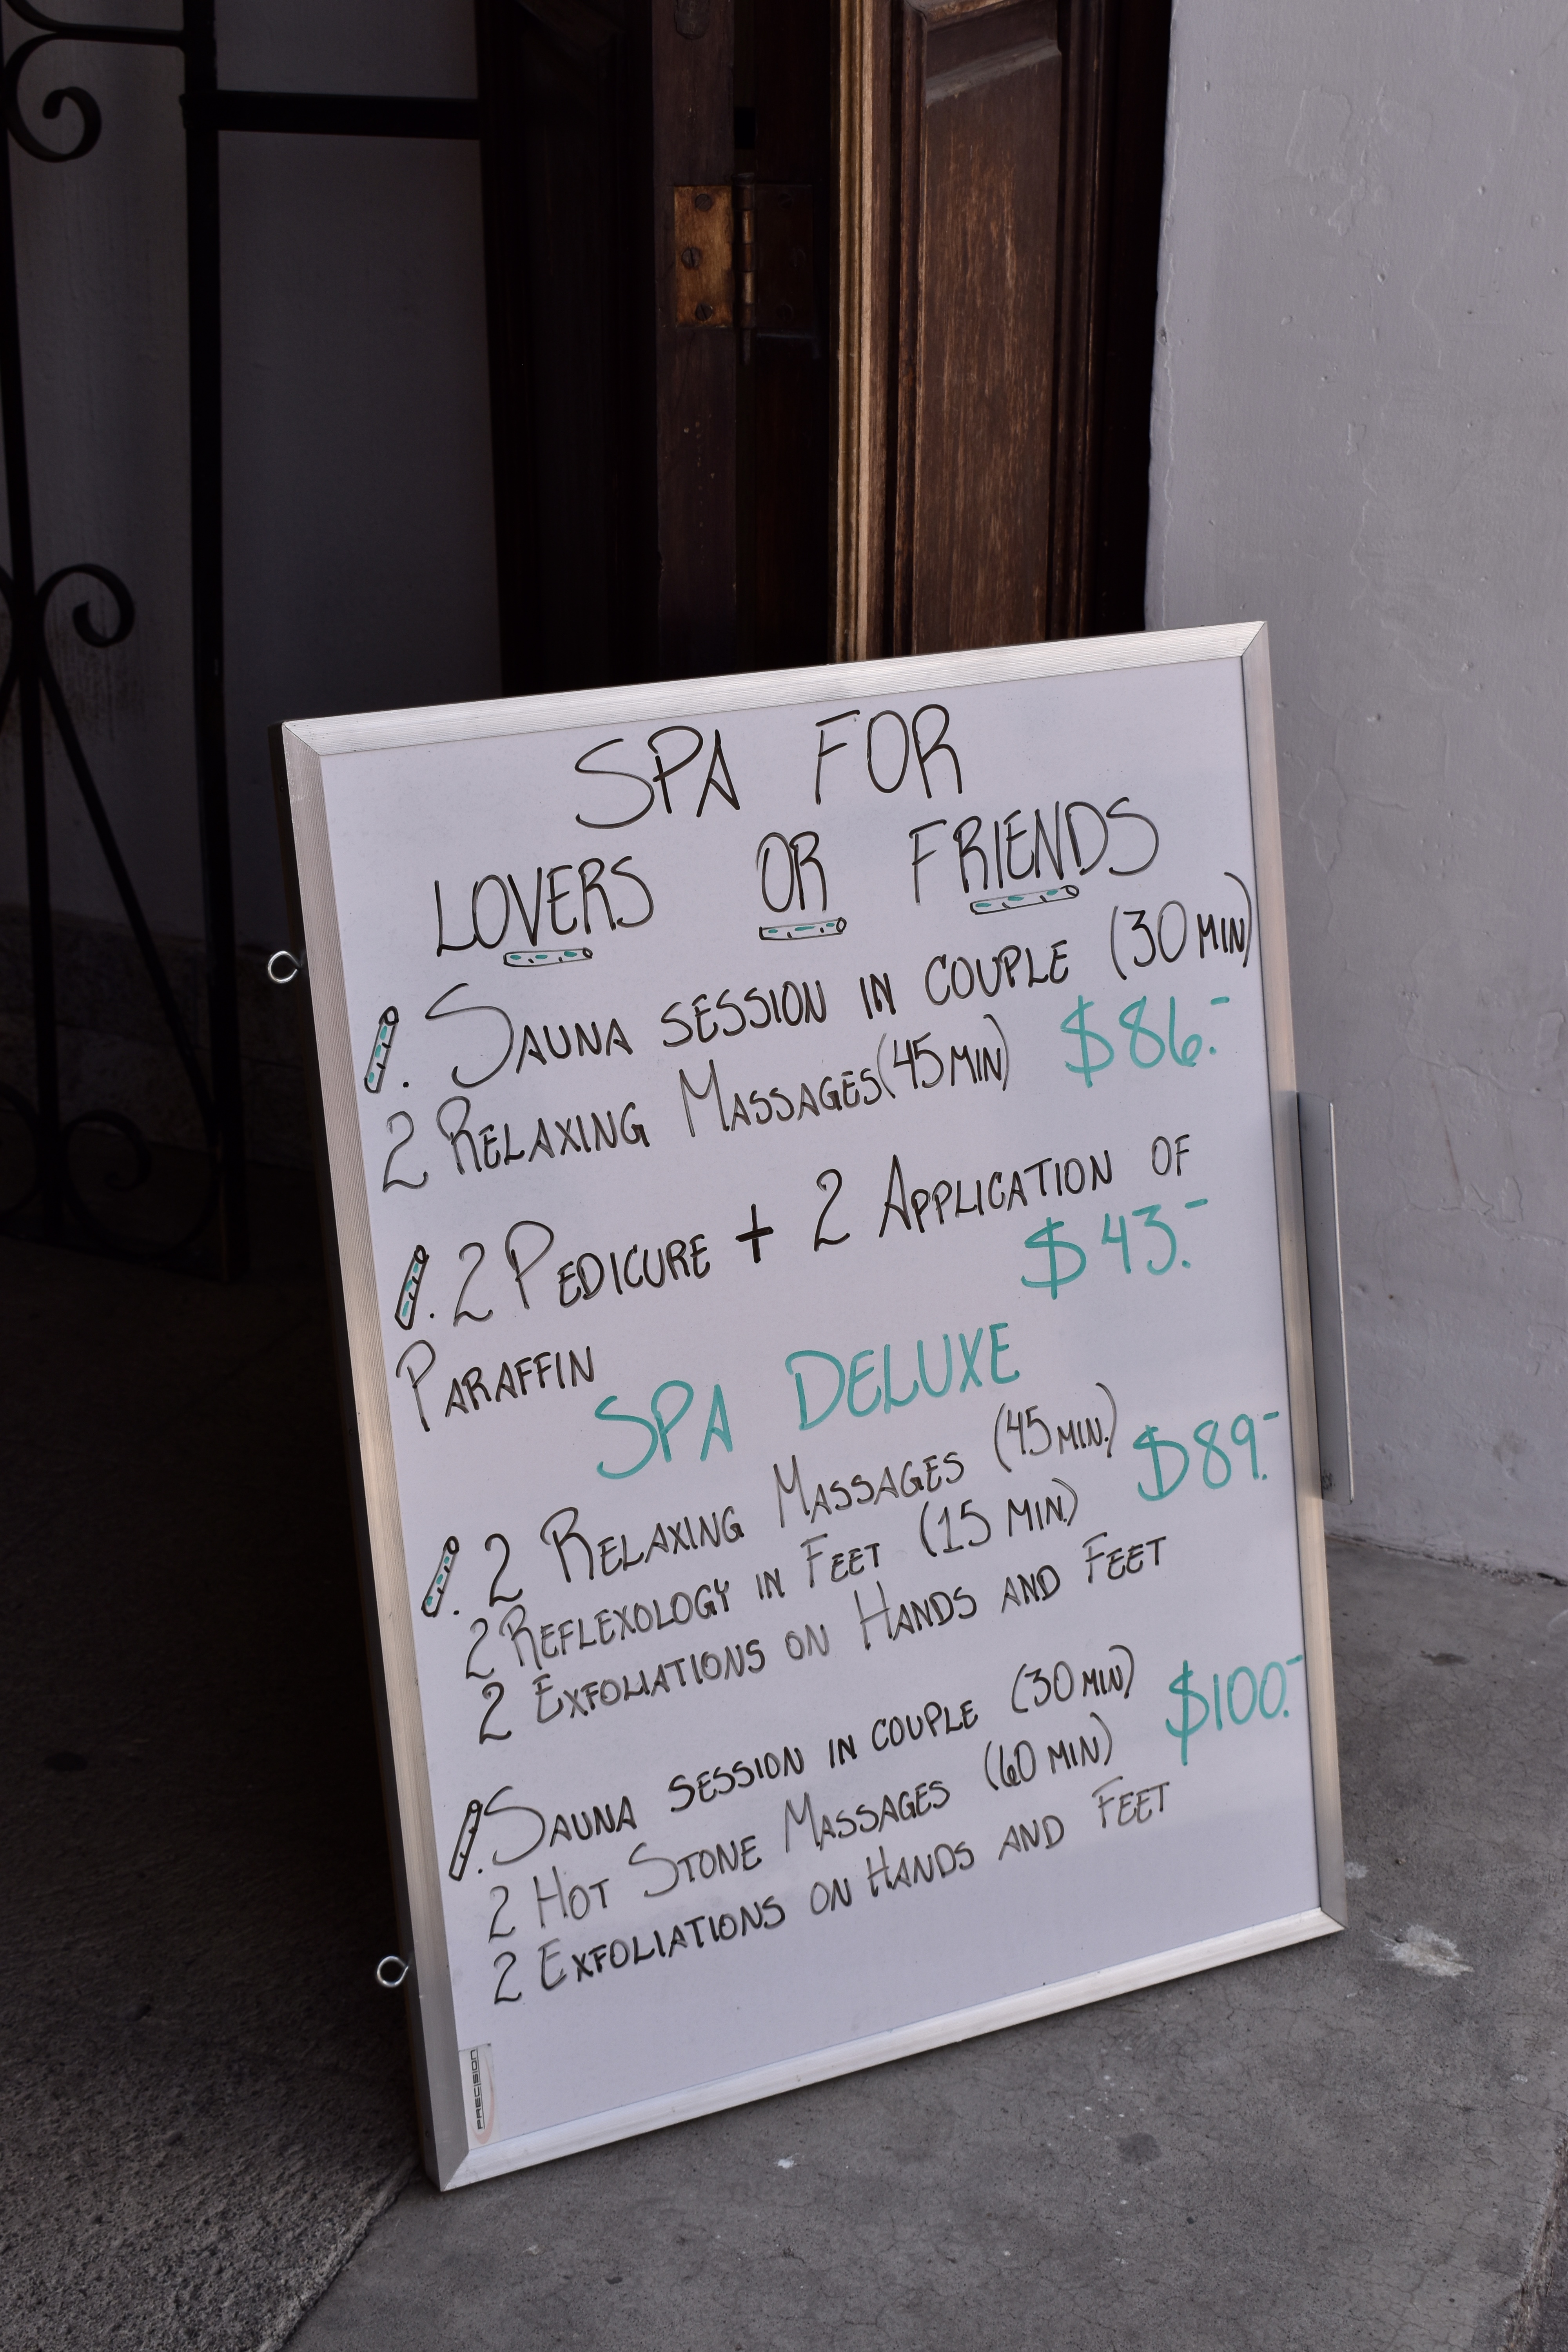 SPA FOR
LOVERS OR FRIENDS
. SAUNA SESSION IN COUPLE (30 MIN)
2 RELAXING MASSAGES (45 MIN) $86.-
. 2 PEDICURE + 2 APPLICATION OF
PARAFFIN $43.-
SPA DELUXE
. 2 RELAXING MASSAGES (45 MIN.) $89.-
2 REFLEXOLOGY IN FEET (15 MIN.)
2 EXFOLIATIONS ON HANDS AND FEET
. SAUNA SESSION IN COUPLE (30 MIN) $100.-
2 HOT STONE MASSAGES (60 MIN)
2 EXFOLIATIONS ON HANDS AND FEET
PRECISION